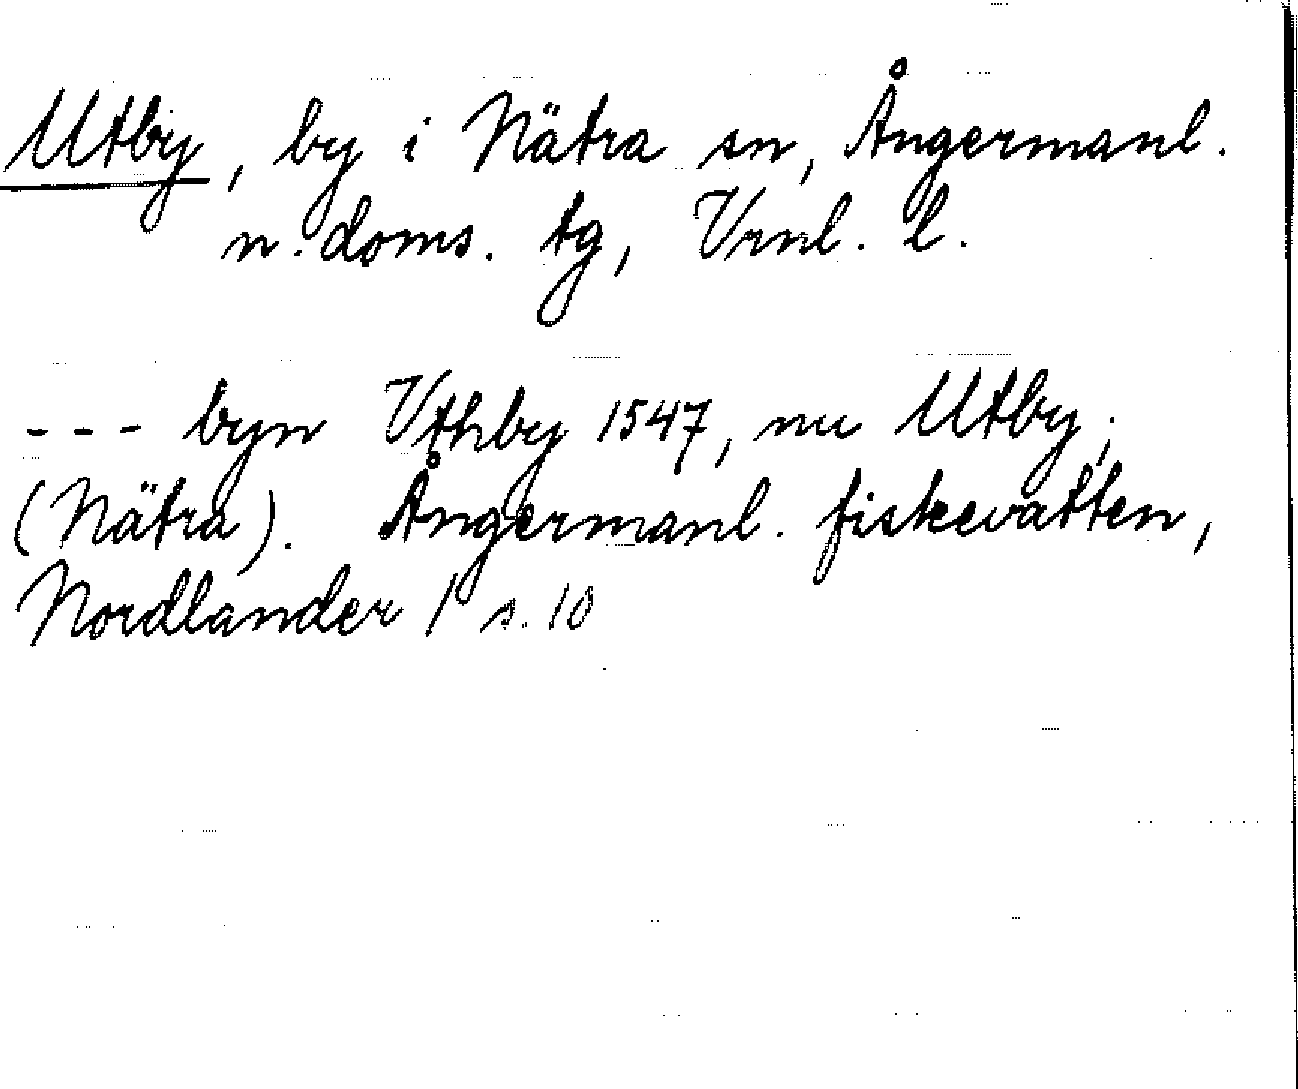 Utby, by i Nätra sn, Ångermanl.
n. doms. tg, Vrnl. l.
--- byn Vthby 1547, nu Utby,
(Nätra). Ångermanl. fiskevatten,
Nordlander / s. 10